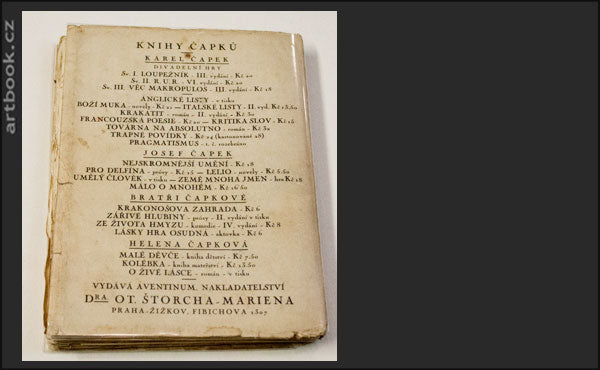 artbook.cz
KNIHY ČAPKŮ
KAREL ČAPEK
DIVADELNÍ HRY
Sv. I. LOUPEŽNÍK - III. vydání - Kč 20
Sv. II. R.U.R. - VI. vydání - Kč 20
Sv. III. VĚC MAKROPULOS - III. vydání - Kč 18
ANGLICKÉ LISTY - v tisku
BOŽÍ MUKA - novely - Kč 21 — ITALSKÉ LISTY - II. vyd. Kč 13.50
KRAKATIT - román - II. vydání - Kč 30
FRANCOUZSKÁ POESIE - Kč 20 — KRITIKA SLOV - Kč 15
TOVÁRNA NA ABSOLUTNO - román - Kč 32
TRAPNÉ POVÍDKY - Kč 24 (kartonované 28)
PRAGMATISMUS - t. č. rozebráno
JOSEF ČAPEK
NEJSKROMNĚJŠÍ UMĚNÍ - Kč 18
PRO DELFINA - prósy - Kč 15 — LELIO - novely - Kč 5.50
UMĚLÝ ČLOVĚK - v tisku — ZEMĚ MNOHA JMEN - hra Kč 18
MÁLO O MNOHÉM - Kč 16.50
BRATŘI ČAPKOVÉ
KRAKONOŠOVA ZAHRADA - Kč 6
ZÁŘIVÉ HLUBINY - prósy - II. vydání v tisku
ZE ŽIVOTA HMYZU - komedie - IV. vydání - Kč 8
LÁSKY HRA OSUDNÁ - aktovka - Kč 6
HELENA ČAPKOVÁ
MALÉ DĚVČE - kniha dětství - Kč 7.50
KOLÉBKA - kniha mateřství - Kč 13.50
O ŽIVÉ LÁSCE - román - v tisku
VYDÁVÁ AVENTINUM, NAKLADATELSTVÍ
DRA. OT. ŠTORCHA-MARIENA
PRAHA-ŽIŽKOV, FIBICHOVA 1307